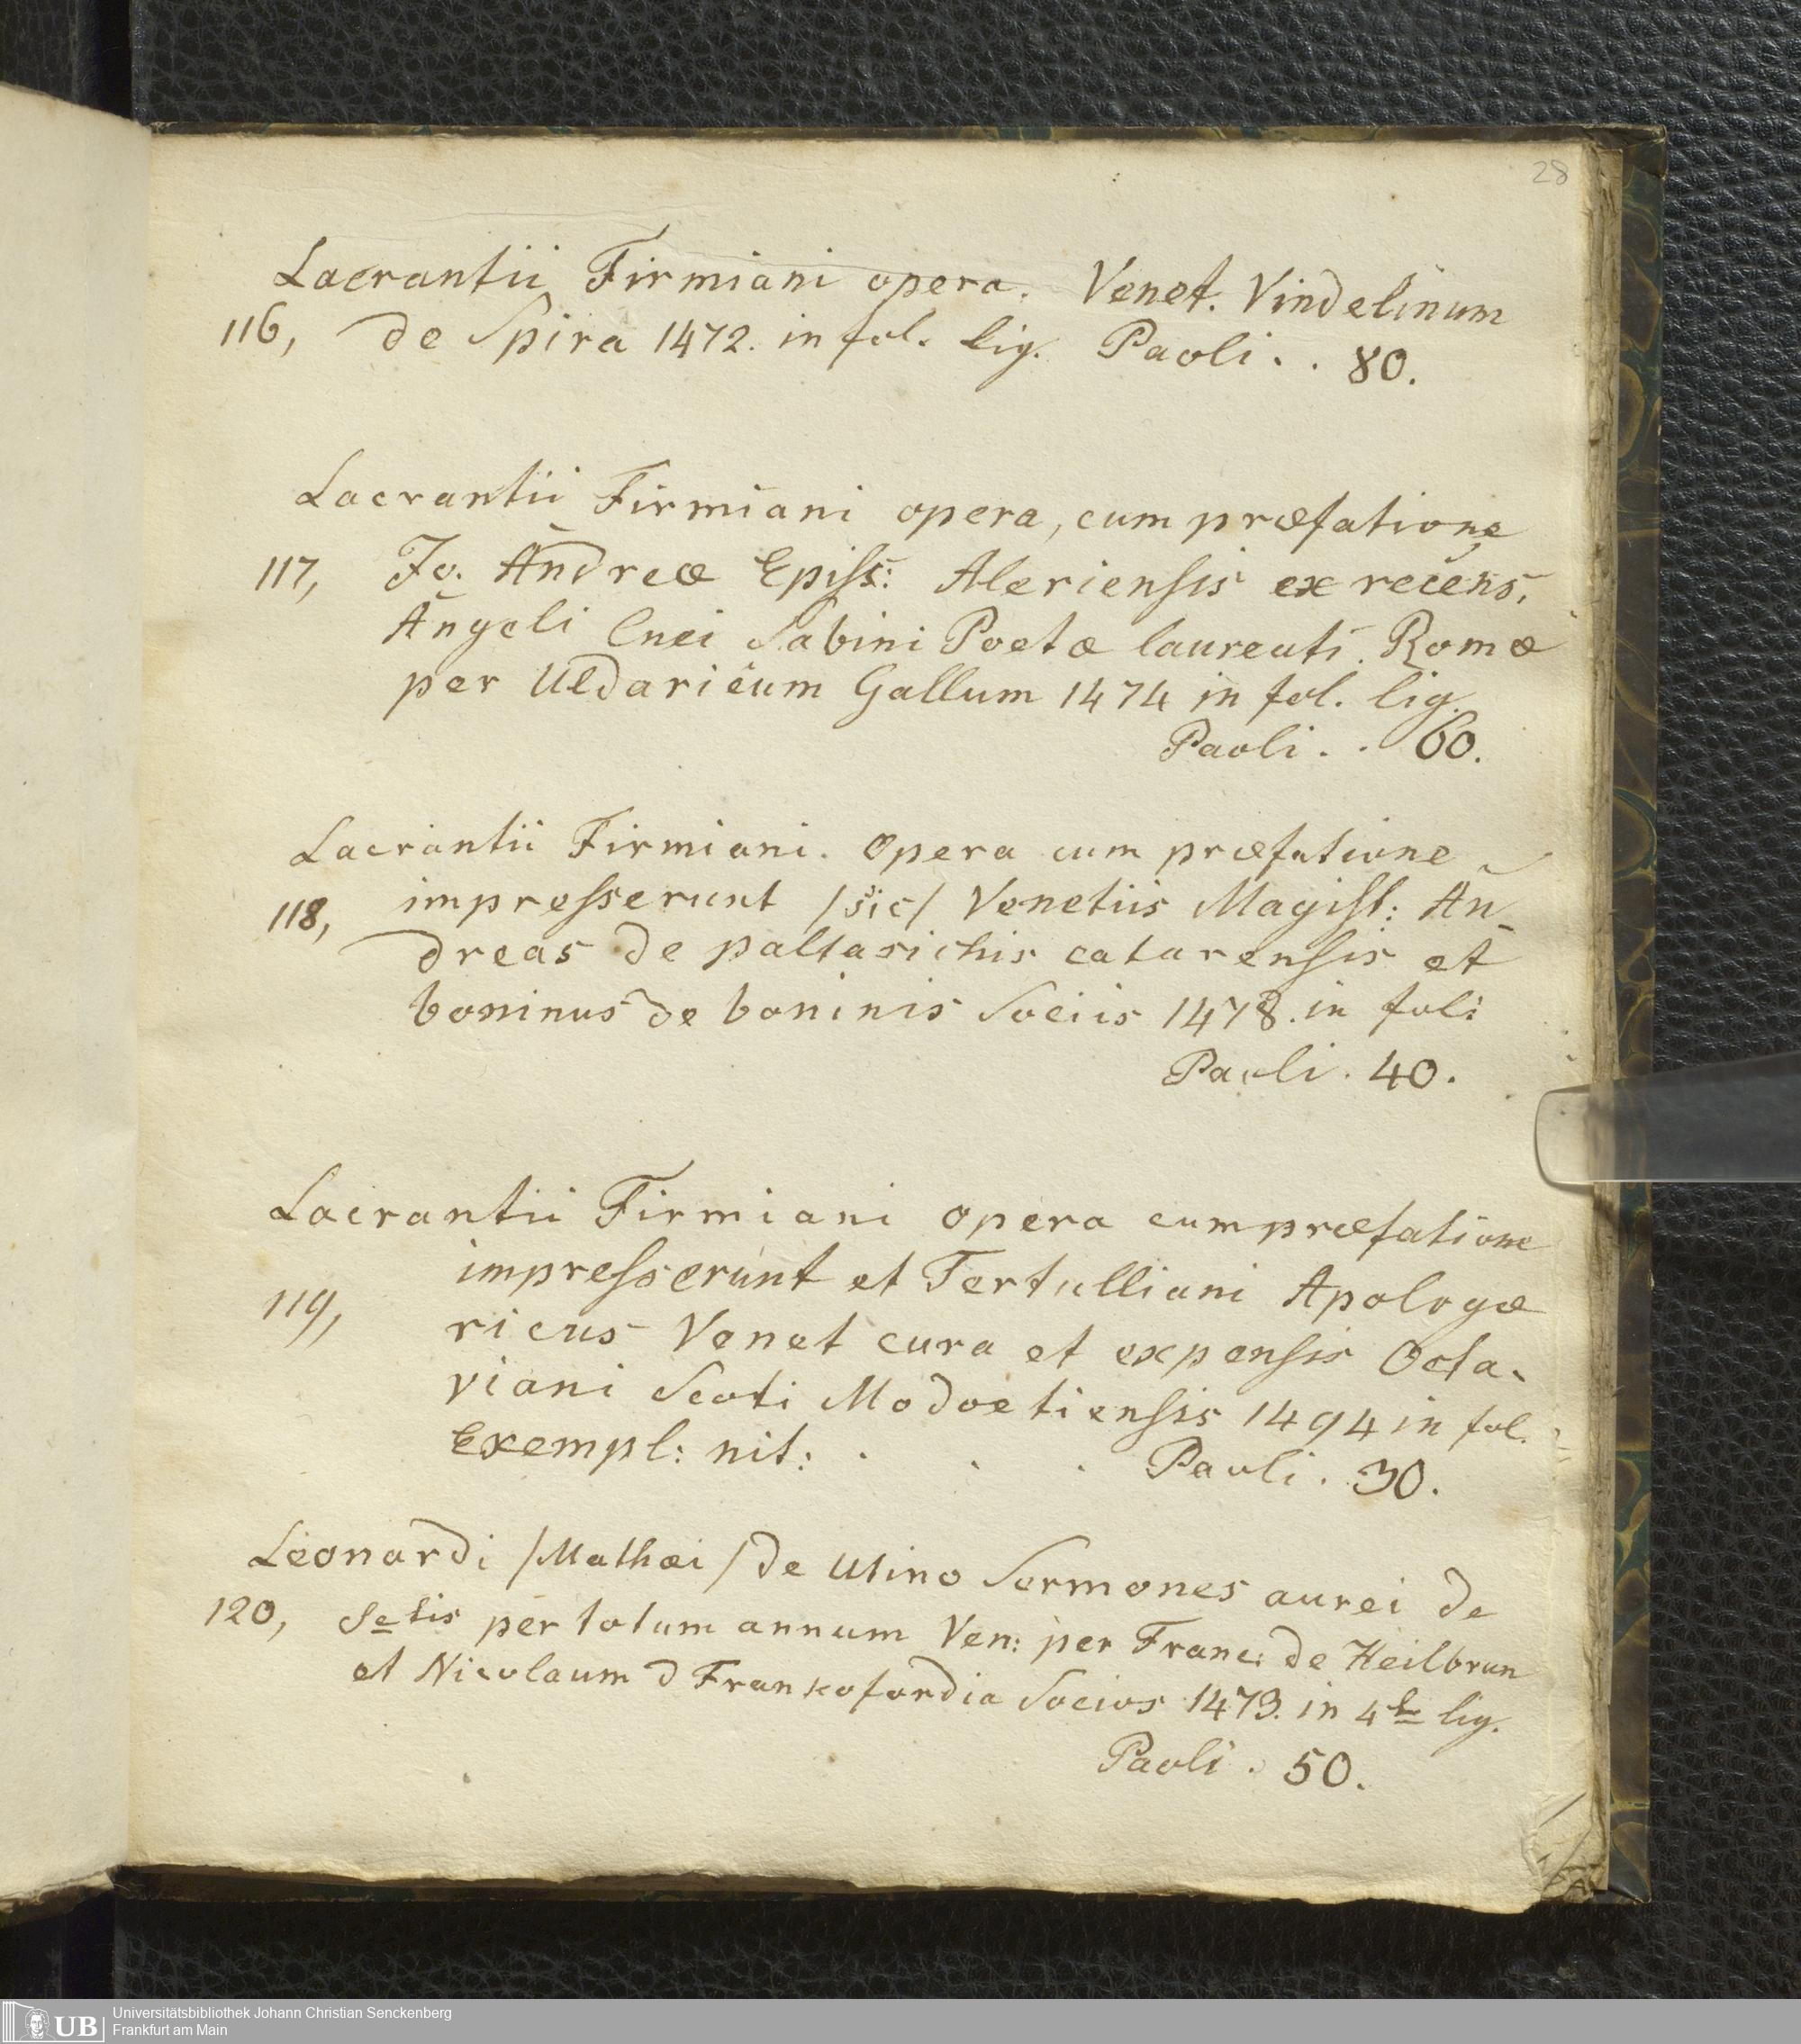 28
Lacrantii Firmiani opera. Venet. Vindelinum
116, de Spira 1472. in fol. lig. Paoli . . 80.
Lacrantii Firmiani opera, cum præfatione
117, Jo. Andreæ Episc: Aleriensis ex recens.
Angeli Cnei Sabini Poetæ laureati. Romæ
per Uldaricum Gallum 1474 in fol. lig.
Paoli . . 60.
Lacrantii Firmiani. Opera cum præfatione
118, impresserunt /sic/ Venetiis Magist: An-
dreas de paltasichis catarensis et
boninus de boninis Sociis 1478. in fol:
Paoli . 40.
Lacrantii Firmiani opera cum præfatione
impresserunt et Tertulliani Apologæ
119, ricus Venet cura et expensis Octa-
viani Scoti Modoetiensis 1494 in fol.
Exempl: nit: . . . Paoli . 30.
Leonardi /Mathæi/ de Utino Sermones aurei de
120, Sctis per totum annum Ven: per Franc: de Heilbrun
et Nicolaum d Frankofordia Socios 1473. in 4to lig.
Paoli . 50.
UB Universitätsbibliothek Johann Christian Senckenberg
Frankfurt am Main